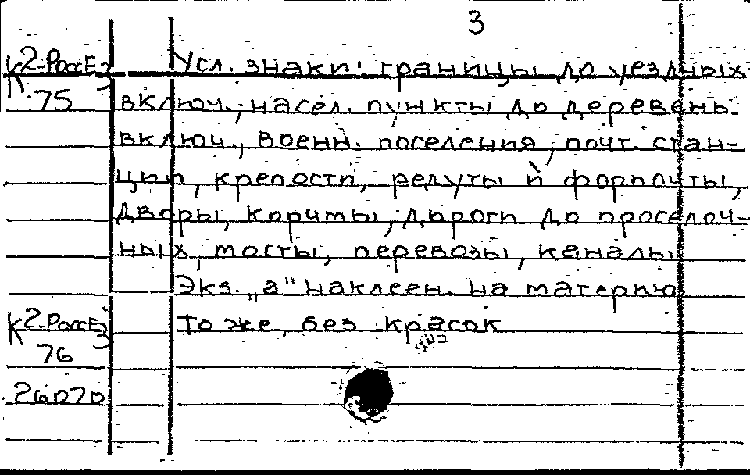 3
К2-РоссЕ/3 Усл. знаки: границы до уездных
75 включ., насел. пункты до деревень
включ., военн. поселения, почт. стан-
ции, крепости, редуты и форпосты,
дворы, корчмы, дороги до проселоч-
ных, мосты, перевозы, каналы
Экз. „а" наклеен. на материю
К2-РоссЕ/3 То же, без красок
76
26070